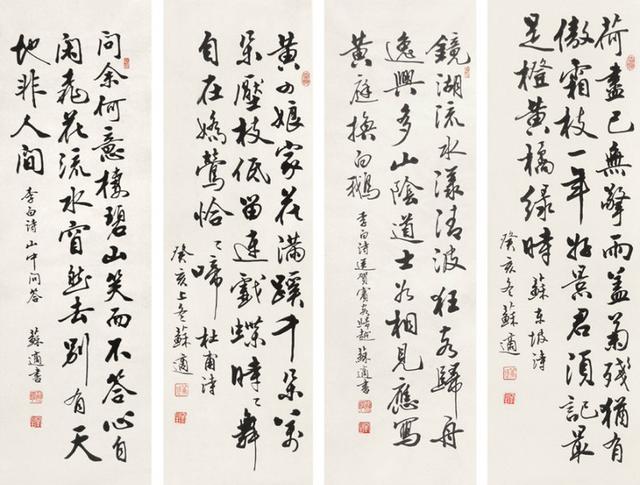 荷盡已無擎雨蓋菊殘猶有
傲霜枝一年好景君須記最
是橙黃橘綠時 蘇東坡詩
癸亥冬蘇適
鏡湖流水漾清波狂客歸舟
逸興多山陰道士如相見應寫
黃庭換白鵝 李白詩送賀賓客歸越 蘇適書
黃四娘家花滿蹊千朵萬
朵壓枝低留連戲蝶時〻舞
自在嬌鶯恰〻啼 杜甫詩
癸亥上冬蘇適
問余何意棲碧山笑而不答心自
閑桃花流水窅然去別有天
地非人間 李白詩山中問答 蘇適書